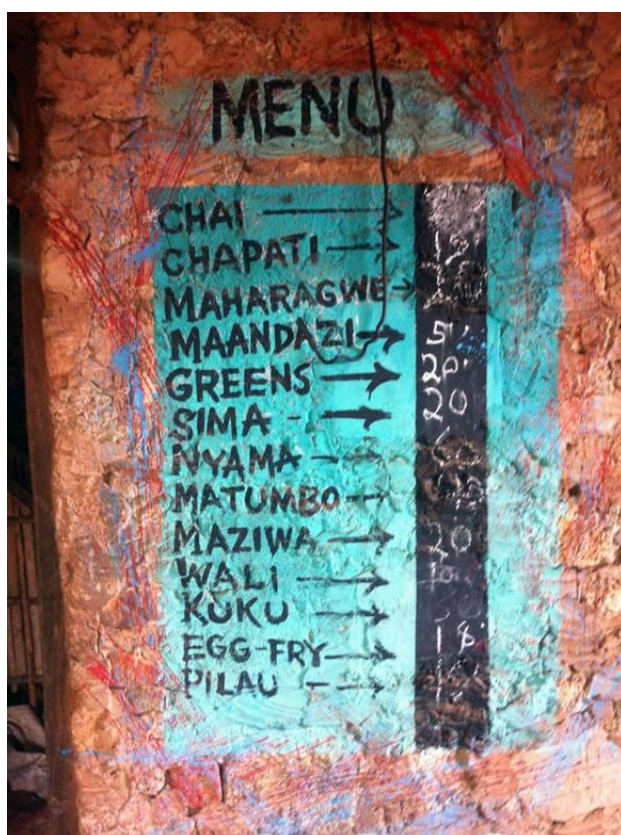 MENU
CHAI
CHAPATI
MAHARAGWE
MAANDAZI 5
GREENS 20
SIMA 20
NYAMA
MATUMBO
MAZIWA 20
WALI
KUKU
EGG-FRY
PILAU